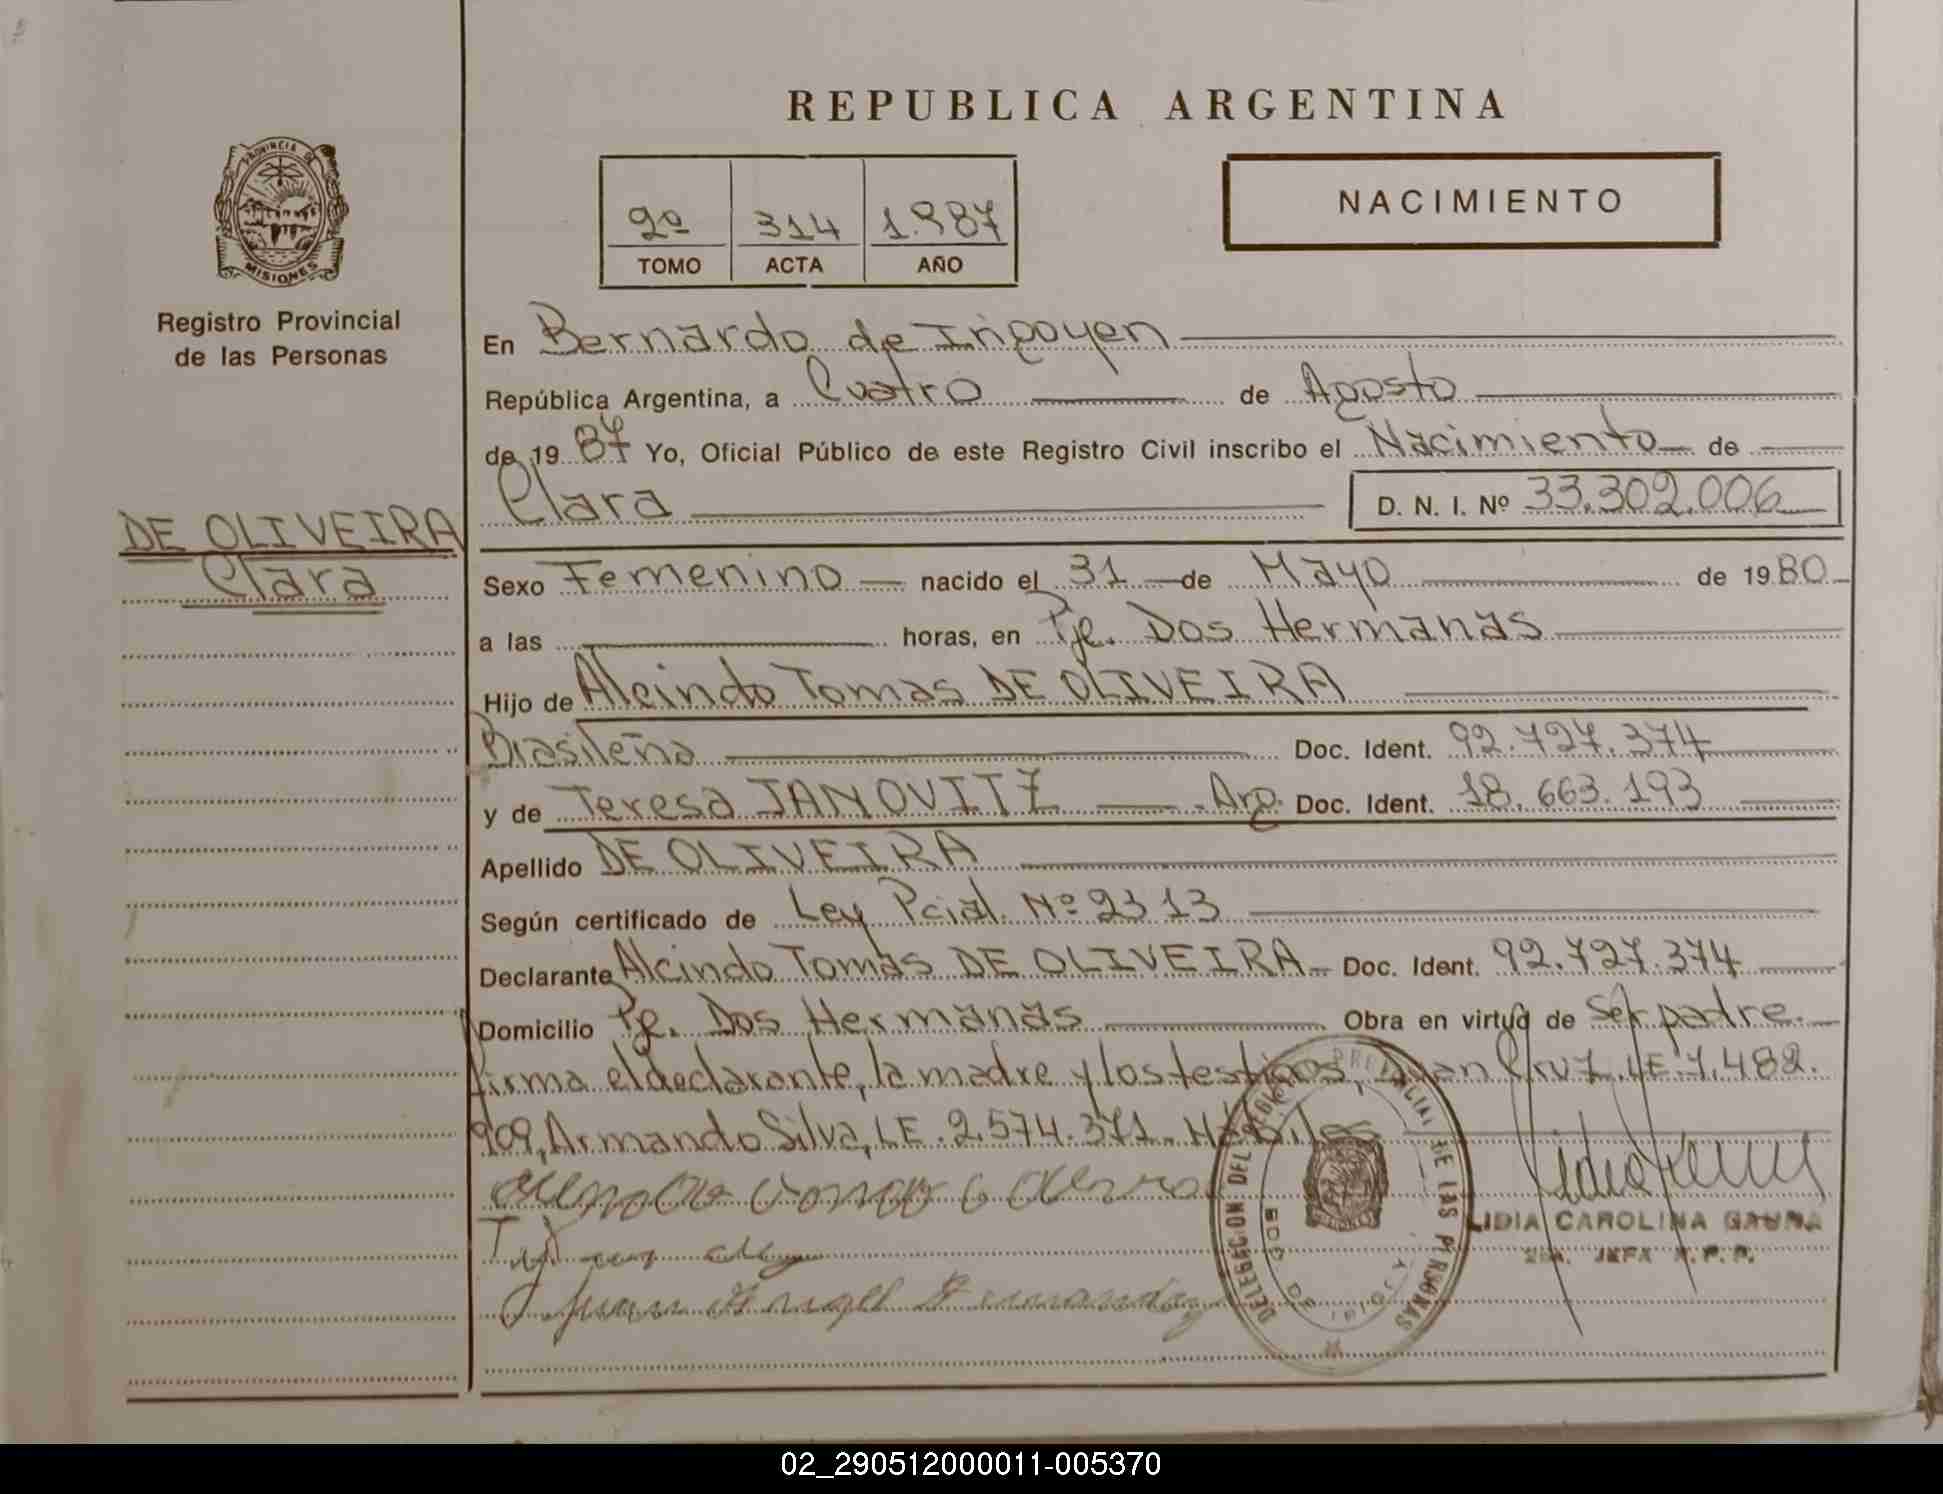 REPUBLICA ARGENTINA
PROVINCIA DE
MISIONES
Registro Provincial
de las Personas
2º 314 1.987
TOMO ACTA AÑO
NACIMIENTO
En Bernardo de Irigoyen
República Argentina, a Cuatro de Agosto
de 19 87 Yo, Oficial Público de este Registro Civil inscribo el Nacimiento de
Clara D. N. I. Nº 33.302.006
DE OLIVEIRA
Clara
Sexo Femenino nacido el 31 de Mayo de 19 80
a las horas, en Pje. Dos Hermanas
Hijo de Alcindo Tomas DE OLIVEIRA
Brasileña Doc. Ident. 92.727.374
y de Teresa JANOVITZ Arg. Doc. Ident. 18.663.193
Apellido DE OLIVEIRA
Según certificado de Ley Pcial Nº 2313
Declarante Alcindo Tomas DE OLIVEIRA Doc. Ident. 92.727.374
Domicilio Pje. Dos Hermanas Obra en virtud de Ser padre.
firma el declarante, la madre y los testigos, Juan Cruz LE 7.482.
909, Armando Silva, LE. 2.574.371.
DELEGACION DEL REGISTRO PROVINCIAL DE LAS PERSONAS
BDO DE IRIGOYEN
LIDIA CAROLINA GAUNA
JEFA R.P.P.
Juan Angel
02_290512000011-005370